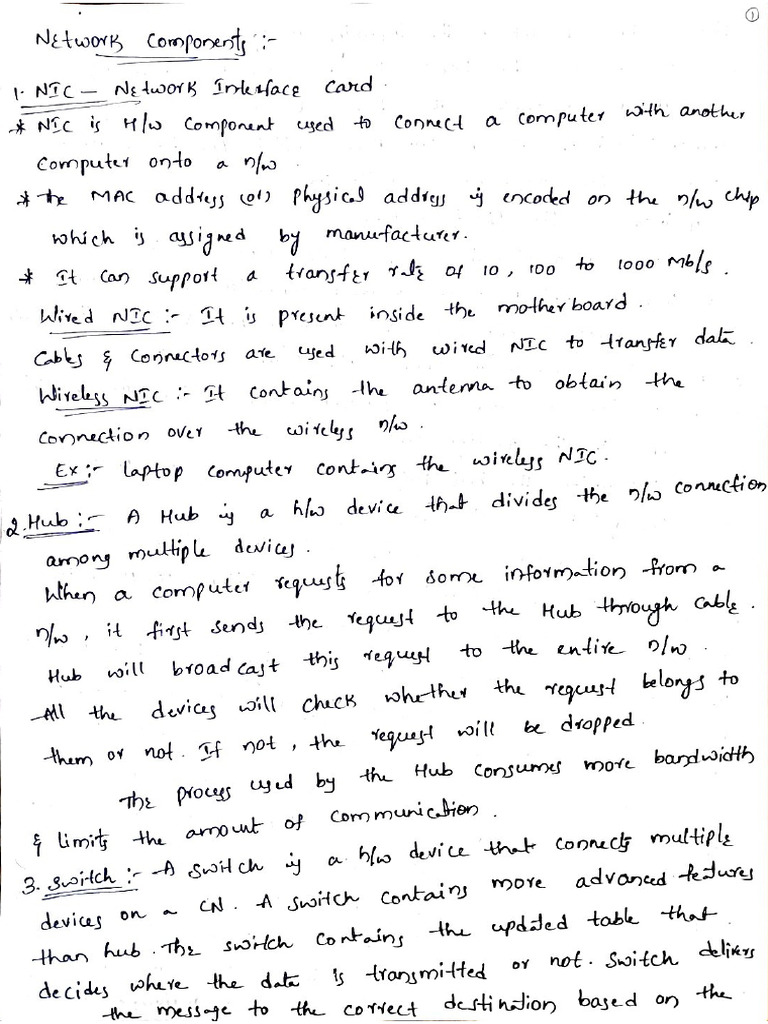 1
Network Components :-
1. NIC - Network Interface Card
* NIC is H/w component used to connect a computer with another
computer onto a n/w
* the MAC address (or) physical address is encoded on the n/w chip
which is assigned by manufacturer.
* It can support a transfer rate of 10, 100 to 1000 Mb/s.
Wired NIC :- It is present inside the motherboard.
Cables & Connectors are used with wired NIC to transfer data.
Wireless NIC :- It contains the antenna to obtain the
connection over the wireless n/w.
Ex :- laptop computer contains the wireless NIC.
2. Hub :- A Hub is a h/w device that divides the n/w connection
among multiple devices.
When a computer requests for some information from a
n/w, it first sends the request to the Hub through cable.
Hub will broadcast this request to the entire n/w.
All the devices will check whether the request belongs to
them or not. If not, the request will be dropped.
The process used by the Hub consumes more bandwidth
& limits the amount of communication.
3. Switch :- A switch is a h/w device that connects multiple
devices on a CN. A switch contains more advanced features
than hub. The switch contains the updated table that
decides where the data is transmitted or not. Switch delivers
the message to the correct destination based on the